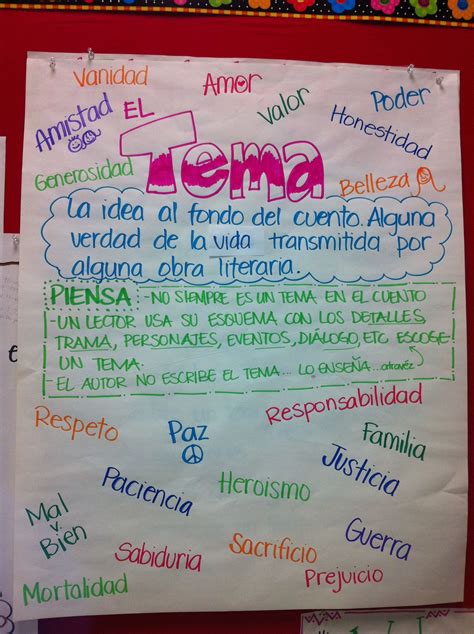 Vanidad
Amor
Poder
Amistad
EL
Valor
Honestidad
Generosidad
Tema
Belleza
La idea al fondo del cuento. Alguna
verdad de la vida transmitida por
alguna obra literaria.
PIENSA: -NO SIEMPRE ES UN TEMA EN EL CUENTO
-UN LECTOR USA SU ESQUEMA CON LOS DETALLES
TRAMA, PERSONAJES, EVENTOS, DIÁLOGO, ETC ESCOGE
UN TEMA.
-EL AUTOR NO ESCRIBE EL TEMA... LO ENSEÑA...atravéz
Responsabilidad
Respeto
Paz
Familia
Justicia
Paciencia
Heroismo
Mal
v.
Bien
Guerra
Sabiduria
Sacrificio
Prejuicio
Mortalidad